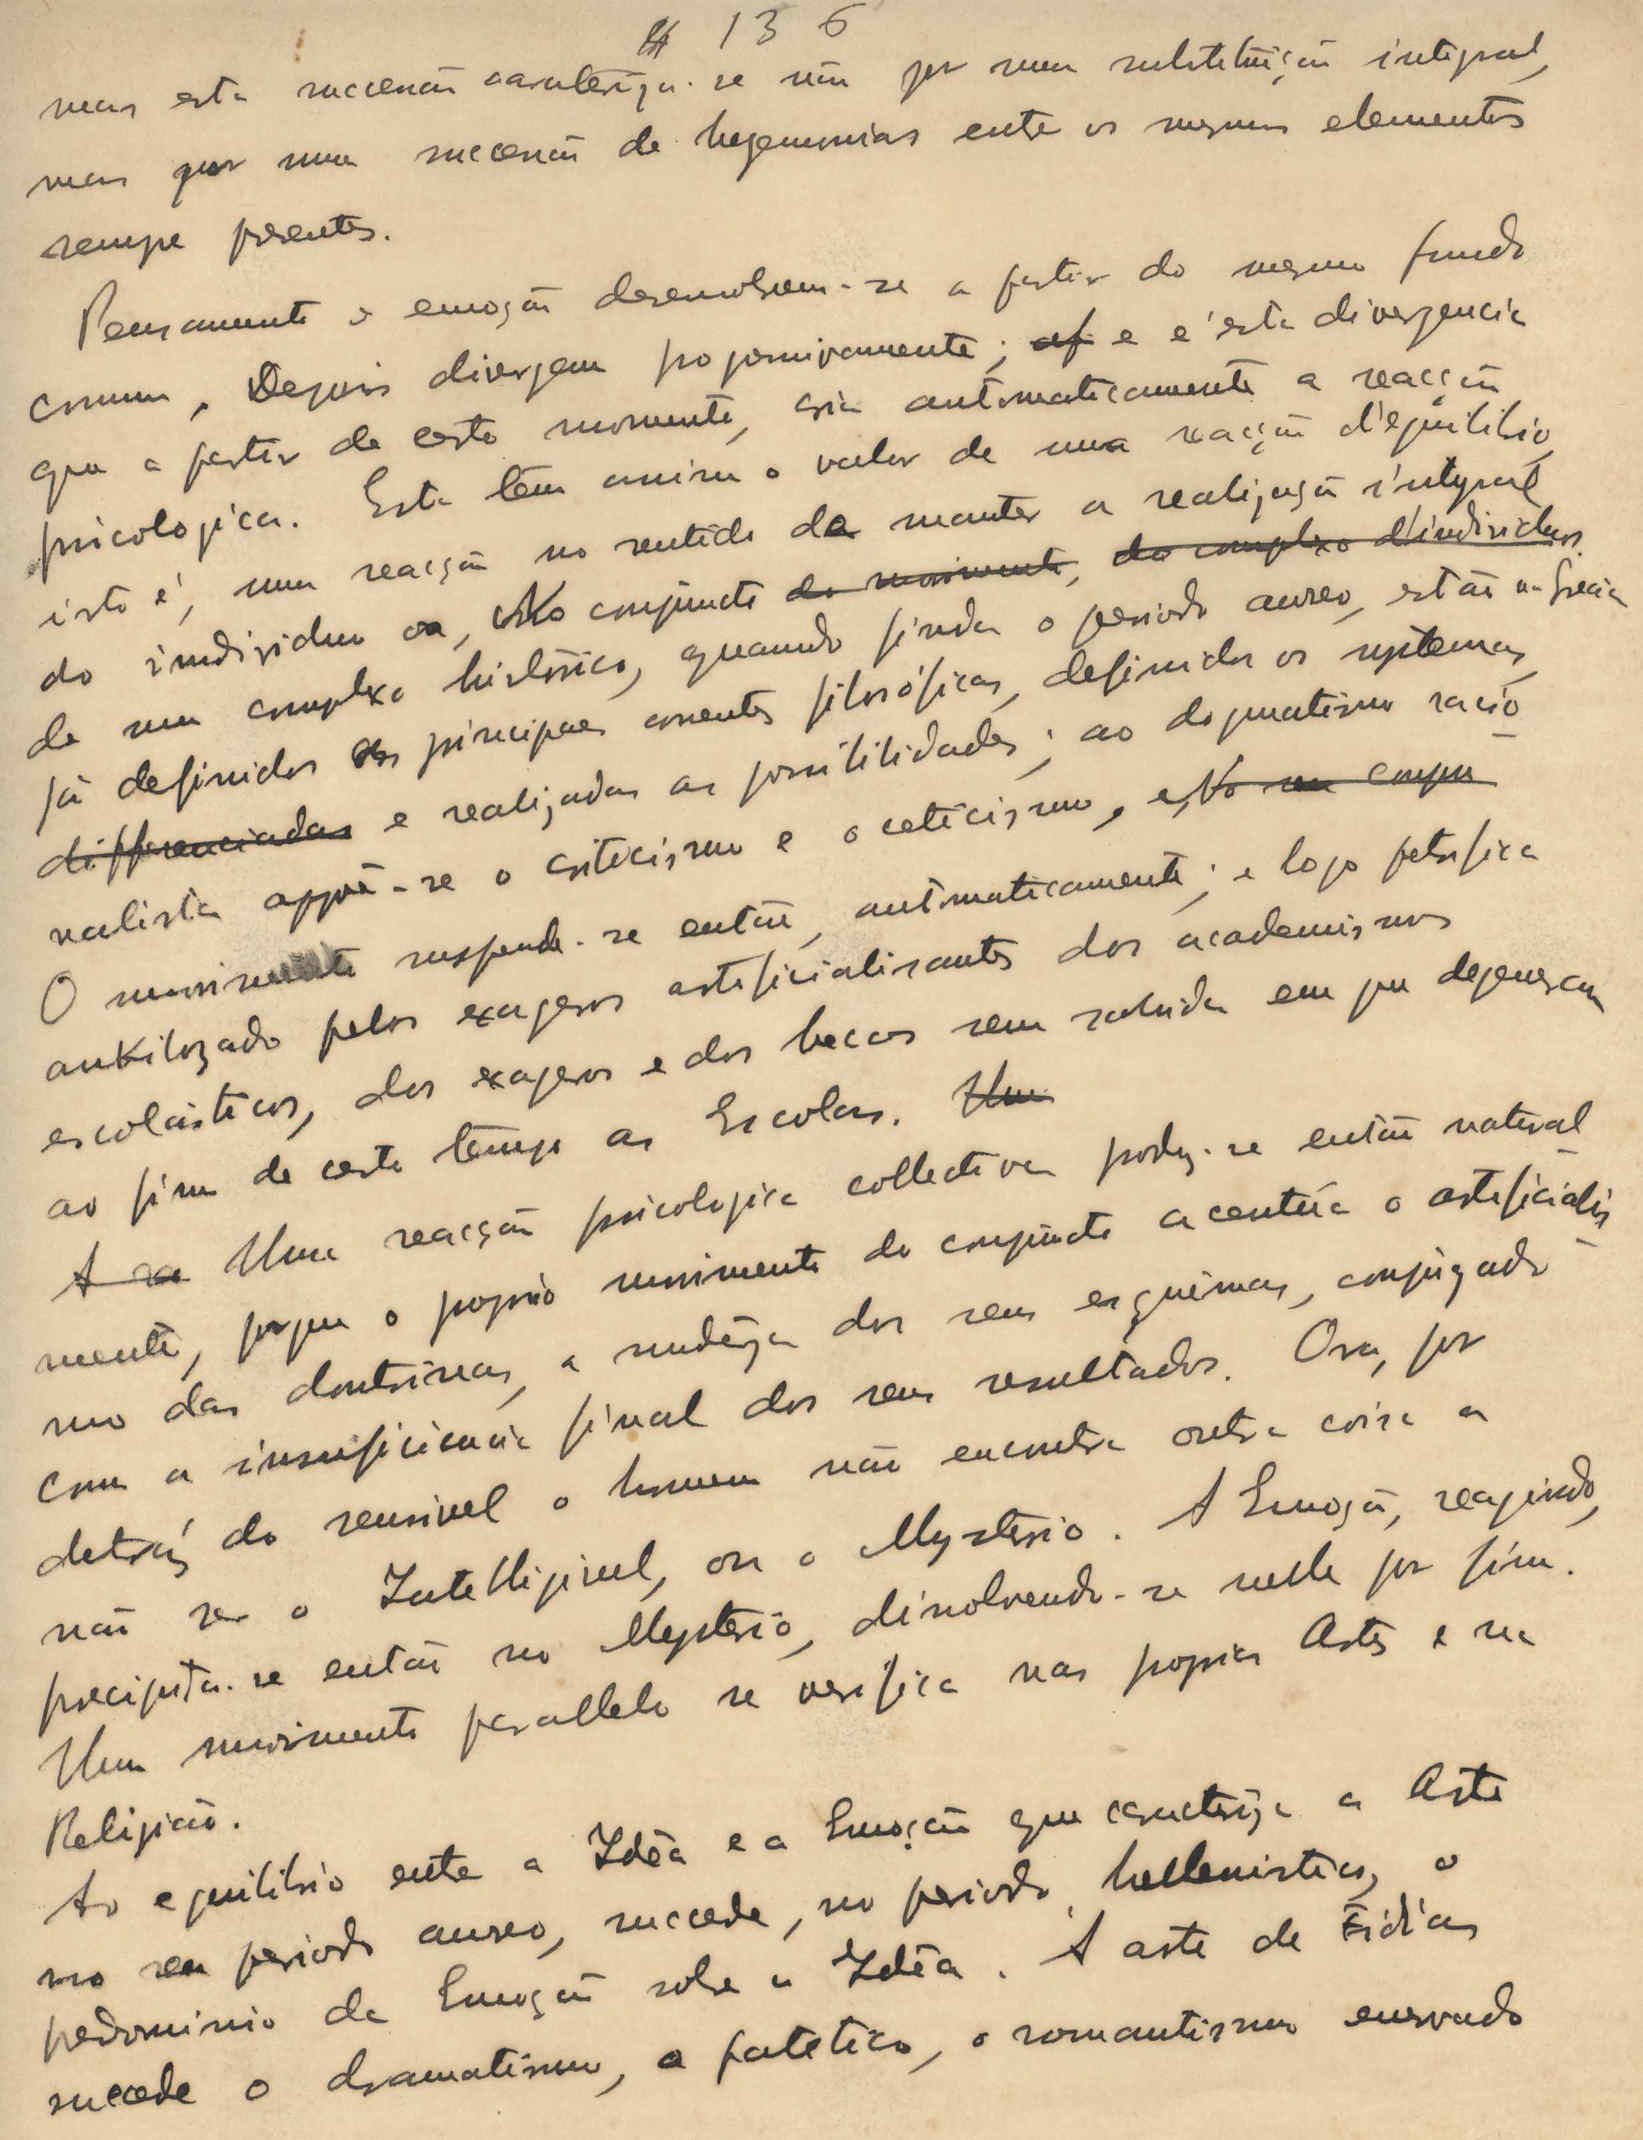 136
mas esta sucessão caracteriza-se não por uma substituição integral,
mas por uma sucessão de hegemonias entre os mesmos elementos
sempre presentes.
Pensamento e emoção desenvolvem-se a partir do mesmo fundo
comum, Depois divergem progressivamente; e é esta divergencia
que a partir de certo momento, cria automaticamente a reacção
psicologica. Esta tem assim o valor de uma reacção d'equilibrio,
isto é, uma reacção no sentido de manter a realização integral
do individuo ou, no conjuncto do movimento, do complexo d'individuos.
de um complexo histórico, quando finda o periodo aureo, estão na Grecia
já definidos as principaes correntes filosóficas, definidos os systemas,
differenciadas e realizadas as possibilidades; ao dogmatismo racio-
nalista oppõe-se o criticismo e o ceticismo, e
O movimento suspende-se então, automaticamente; e logo petrifica
ankilozado pelos exageros artificialisantes dos academismos
escolásticos, dos exageros e dos beccos sem sahida em que degeneram
ao fim de certo tempo as Escolas. Um
A Uma reacção psicologica collectiva produz-se então natural
mente, porque o proprio movimento do conjuncto acentúa o artificialis-
mo das doutrinas, a nudêza dos seus esquêmas, conjugado
com a insuficiencia final dos seus resultados. Ora, por
detraz do sensivel o homem não encontra outra coisa a
não ser o Intelligivel, ou o Mysterio. A Emoção, reagindo,
precipita-se então no Mysterio, dissolvendo-se nelle por fim.
Um movimento parallelo se verifica nas proprias Artes e na
Religião.
Ao equilibrio entre a Idêa e a Emoção que caracteriza a Arte
no seu periodo aureo, succede, no periodo hellenistico, o
predominio da Emoção sobre a Idêa. A arte de Fidias
succede o dramatismo, o patetico, o romantismo enervado